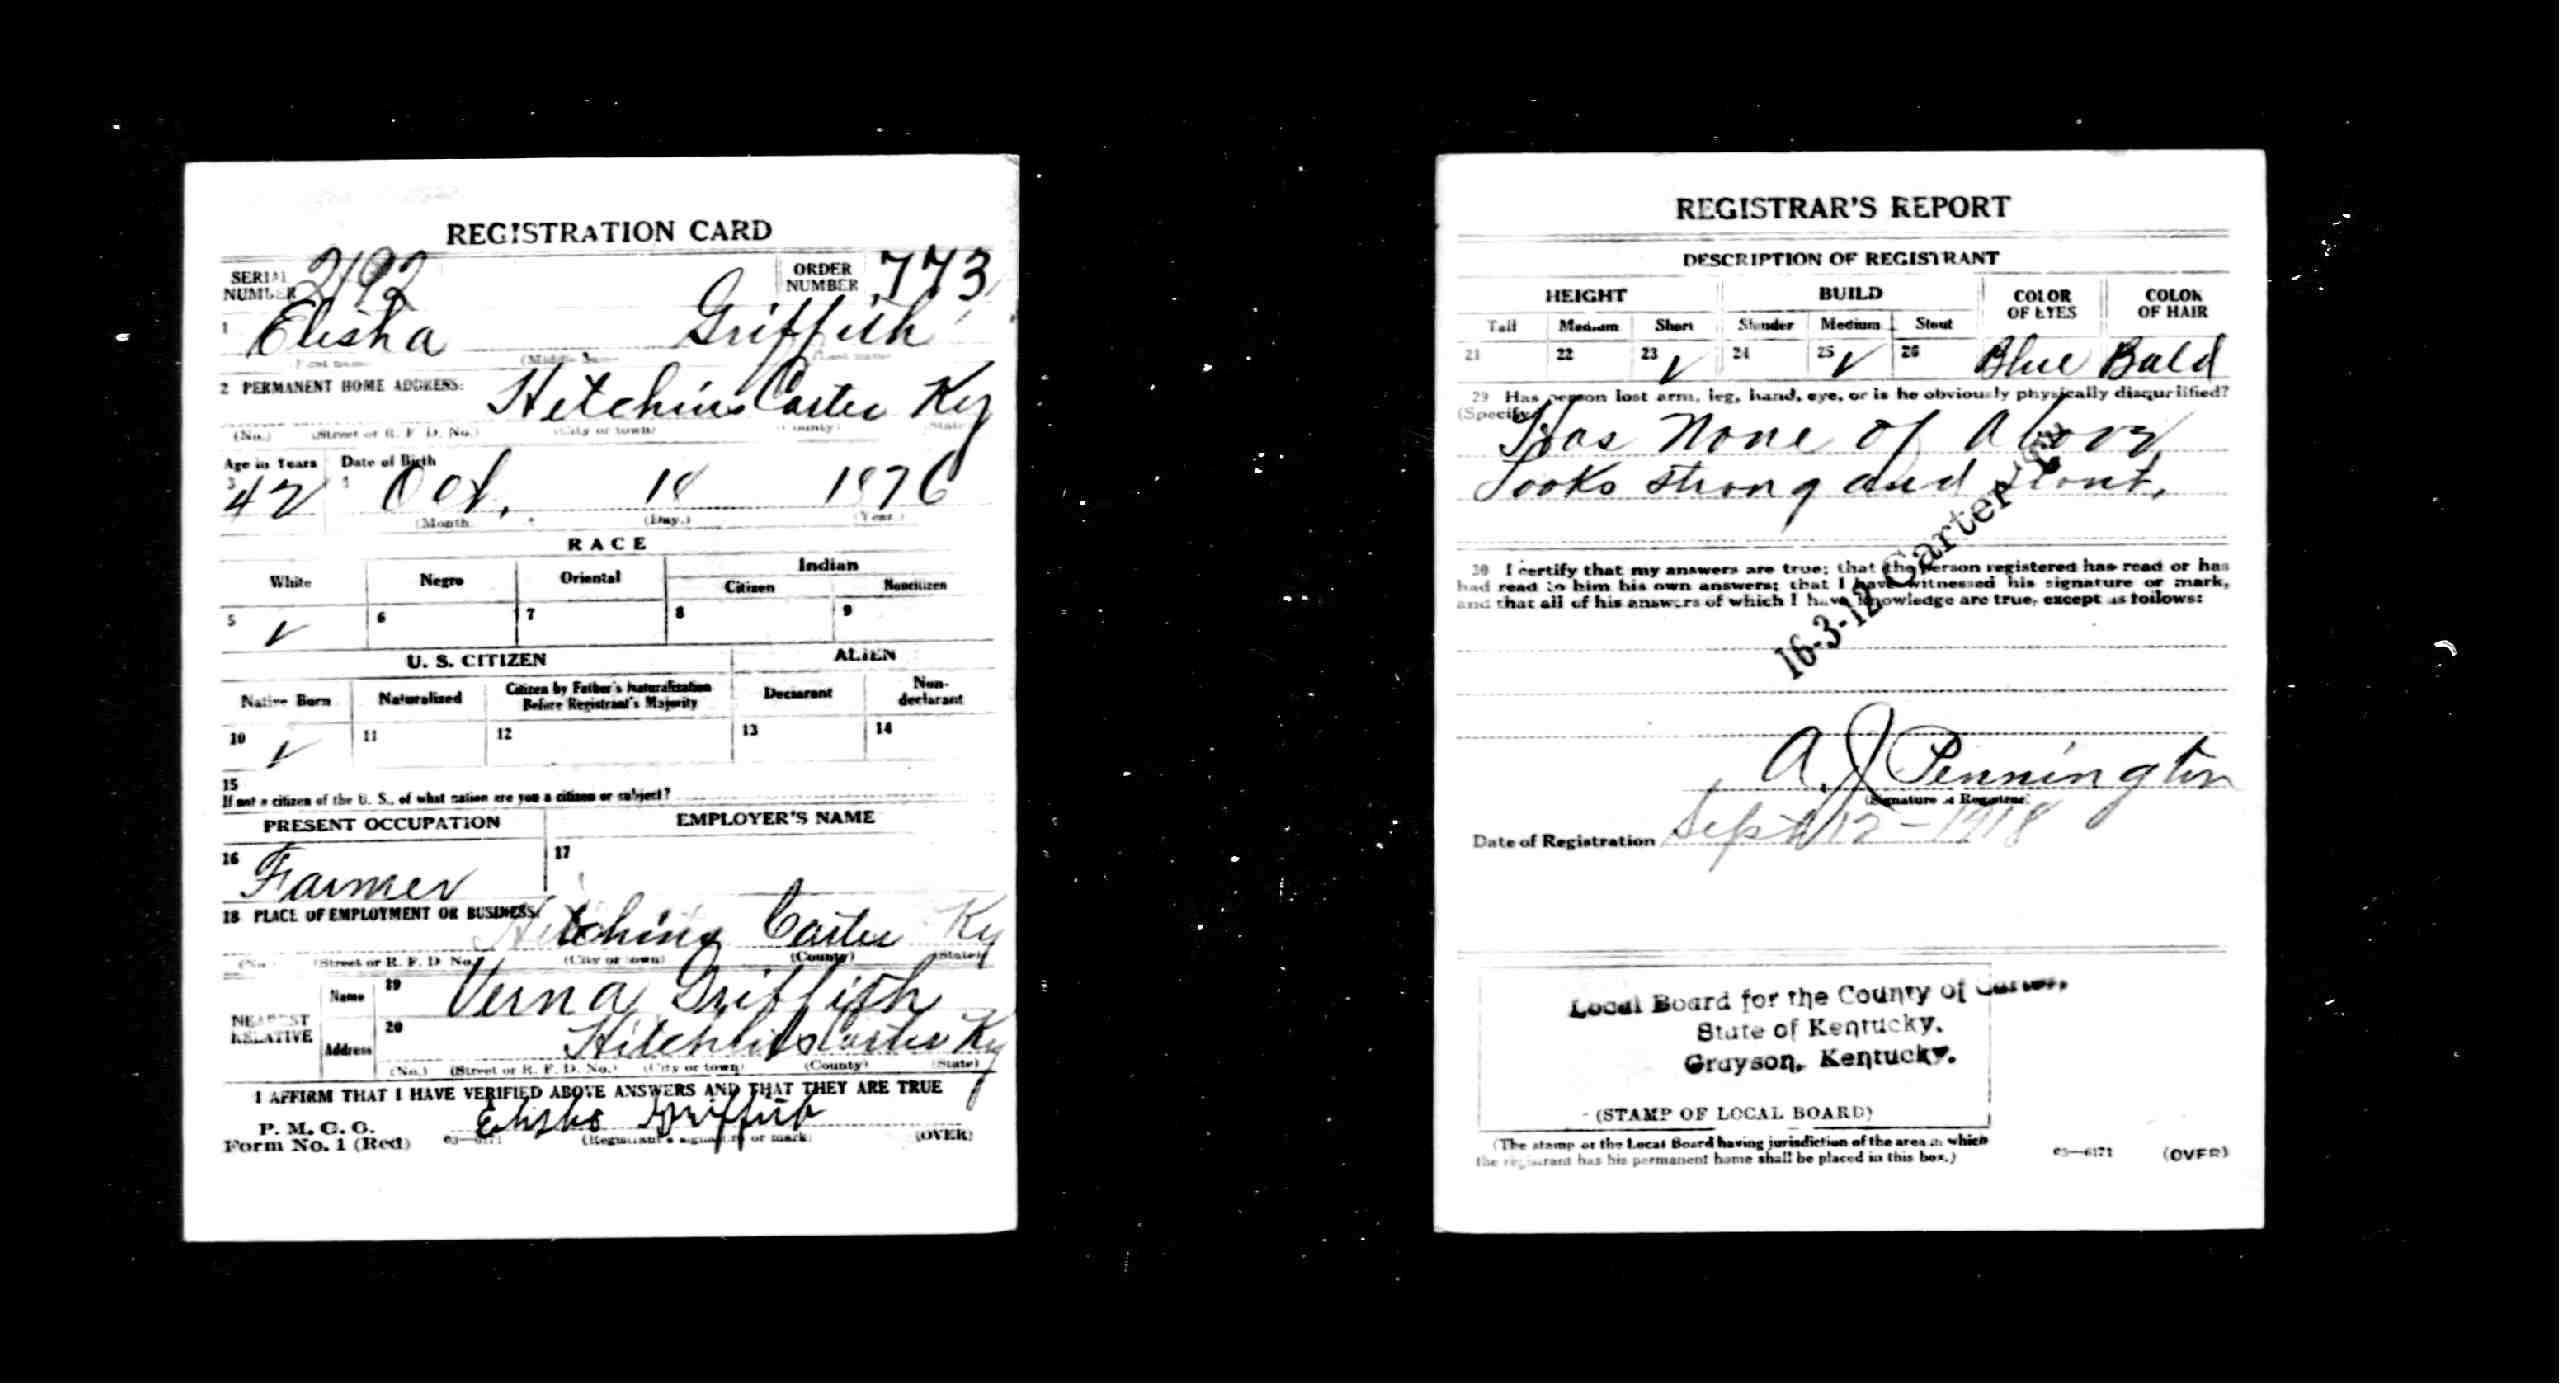 REGISTRATION CARD
SERIAL NUMBER 2192 ORDER NUMBER 773
1 Elisha Griffith
(First name) (Middle name) (Last name)
2 PERMANENT HOME ADDRESS:
Hitchins Carter Ky
(No.) (Street or R. F. D. No.) (City or town) (County) (State)
Age in Years Date of Birth
3 42 4 Oct. 18 1876
(Month.) (Day.) (Year.)
RACE
White Negro Oriental Indian
Citizen Noncitizen
5 ✓ 6 7 8 9
U. S. CITIZEN ALIEN
Native Born Naturalized Citizen by Father's Naturalization Before Registrant's Majority Declarant Non-declarant
10 ✓ 11 12 13 14
15
If not a citizen of the U. S., of what nation are you a citizen or subject?
PRESENT OCCUPATION EMPLOYER'S NAME
16 Farmer 17
18 PLACE OF EMPLOYMENT OR BUSINESS:
Hitchins Carter Ky
(No.) (Street or R. F. D. No.) (City or town) (County) (State)
NEAREST RELATIVE Name 19 Verna Griffith
Address 20 Hitchins Carter Ky
(No.) (Street or R. F. D. No.) (City or town) (County) (State)
I AFFIRM THAT I HAVE VERIFIED ABOVE ANSWERS AND THAT THEY ARE TRUE
P. M. G. O.
Form No. 1 (Red) 03—6171 Elisha Griffith (Registrant's signature or mark) (OVER)
REGISTRAR'S REPORT
DESCRIPTION OF REGISTRANT
HEIGHT BUILD COLOR OF EYES COLOR OF HAIR
Tall Medium Short Slender Medium Stout
21 22 23 ✓ 24 25 ✓ 26 Blue Bald
29 Has person lost arm, leg, hand, eye, or is he obviously physically disqualified?
(Specify.)
Has None of Above
Looks strong and stout.
30 I certify that my answers are true; that the person registered has read or has
had read to him his own answers; that I have witnessed his signature or mark,
and that all of his answers of which I have knowledge are true, except as follows:
16-3-12 Carter
A. J. Pennington
(Signature of Registrar)
Date of Registration Sept 12 - 1918
Local Board for the County of Carter,
State of Kentucky.
Grayson, Kentucky.
(STAMP OF LOCAL BOARD)
(The stamp of the Local Board having jurisdiction of the area in which
the registrant has his permanent home shall be placed in this box.)
03—6171 (OVER)